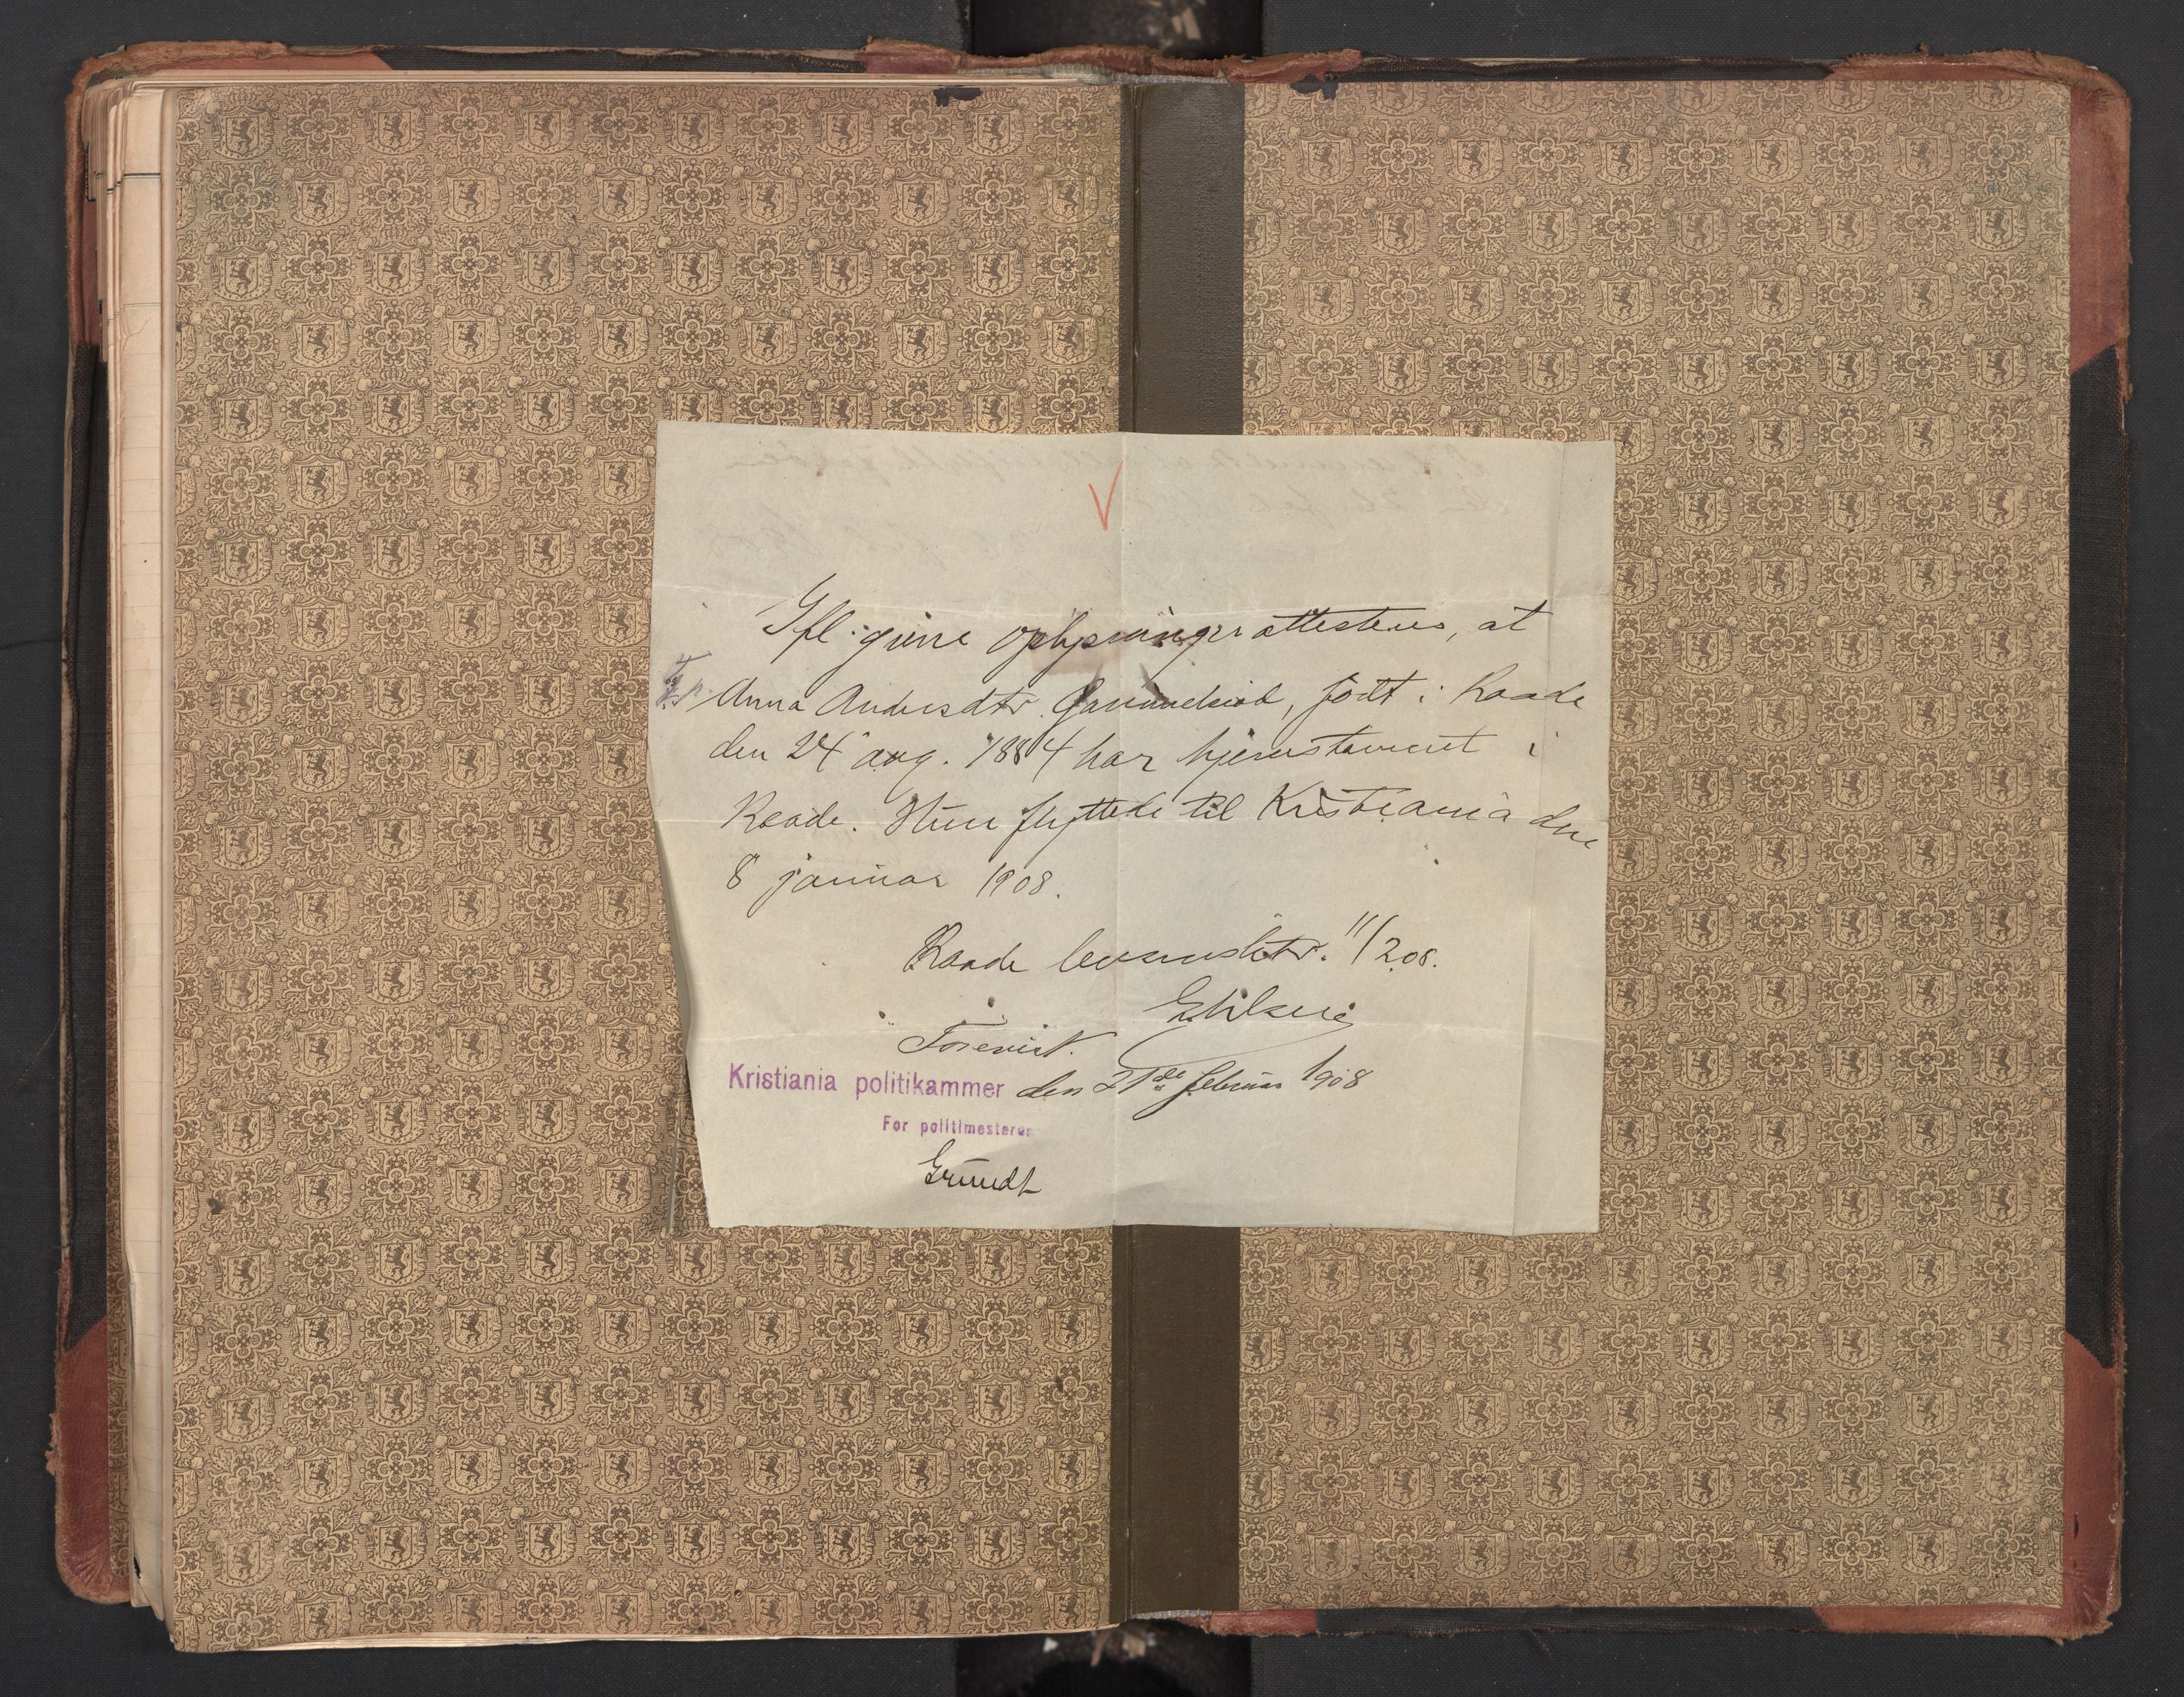 Ifl. givne oplysninger attesteres, at
Anna Andersdtr. født i Raade
den 24 aug. 1884 har hjemstavnret i
Raade. Hun flyttede til Kristiania den
8 januar 1908.
Raade lensmdstr. 11/2 08.
Forevist.
Kristiania politikammer den 21de februar 1908
For politimesteren
Grundt